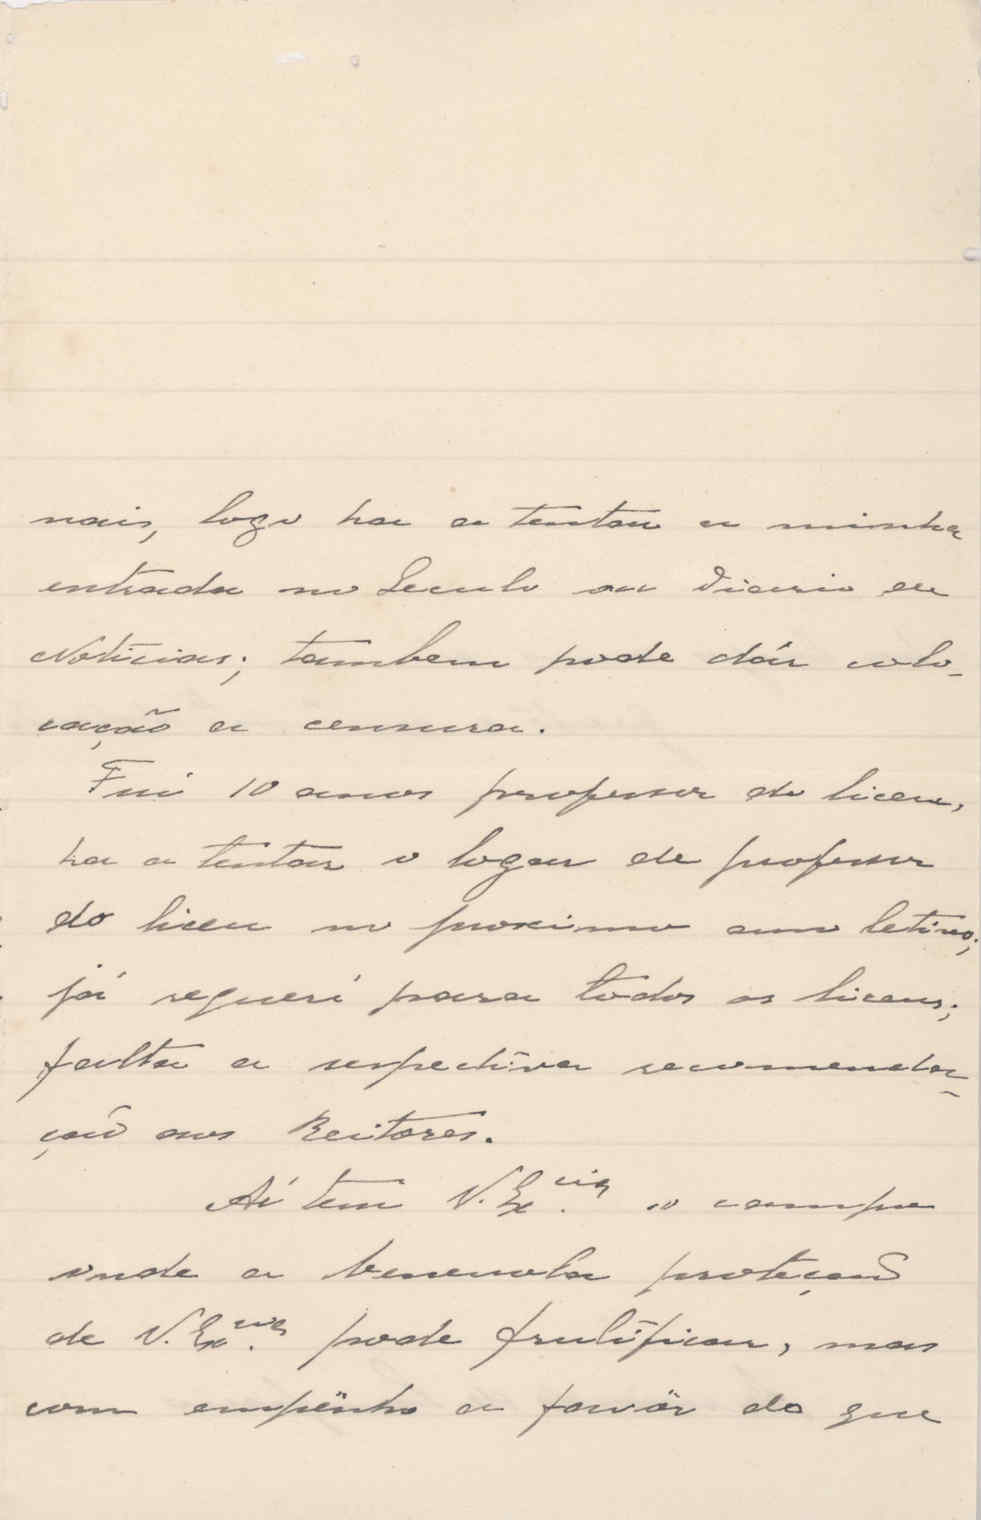 nais, logo ha a tentar a minha
entrada no Seculo ou Diario de
Noticias; tambem pode dár colo-
cação a censura.
Fui 10 anos professor do liceu,
ha a tentar o logar de professor
do liceu no proximo ano letivo;
já requeri para todos os liceus;
falta a respectiva recomenda-
ção aos Reitores.
Aí tem V. Ex.cia o campo
onde a benevola proteção
de V. Ex.cia pode frutificar, mas
com empênho a favôr do que